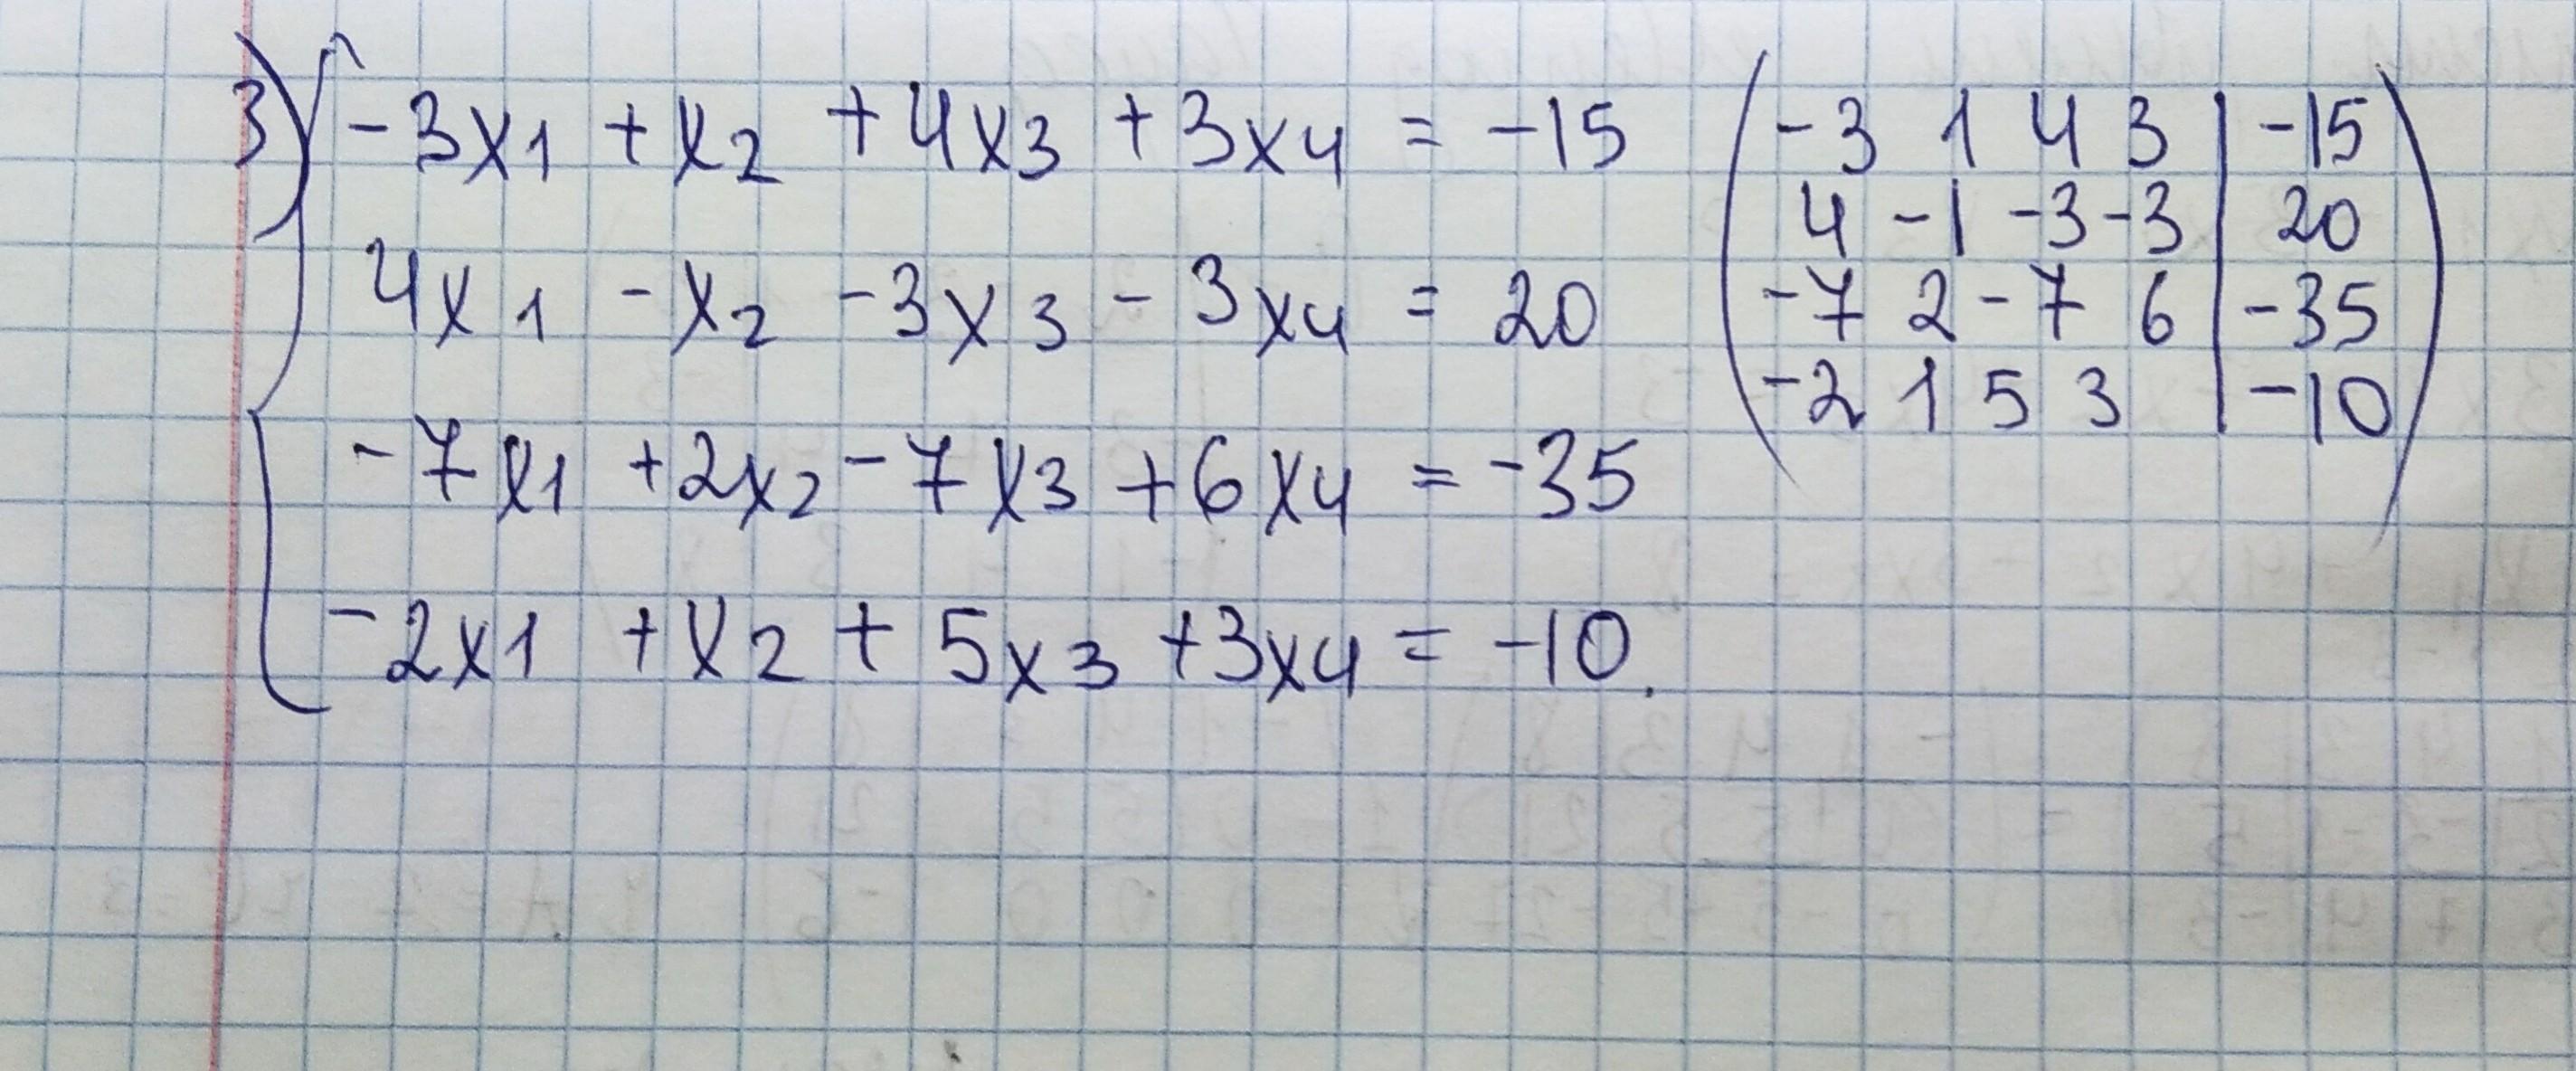 3) -3x1 + x2 + 4x3 + 3x4 = -15
4x1 - x2 - 3x3 - 3x4 = 20
-7x1 + 2x2 - 7x3 + 6x4 = -35
-2x1 + x2 + 5x3 + 3x4 = -10.
-3 1 4 3 | -15
4 -1 -3 -3 | 20
-7 2 -7 6 | -35
-2 1 5 3 | -10